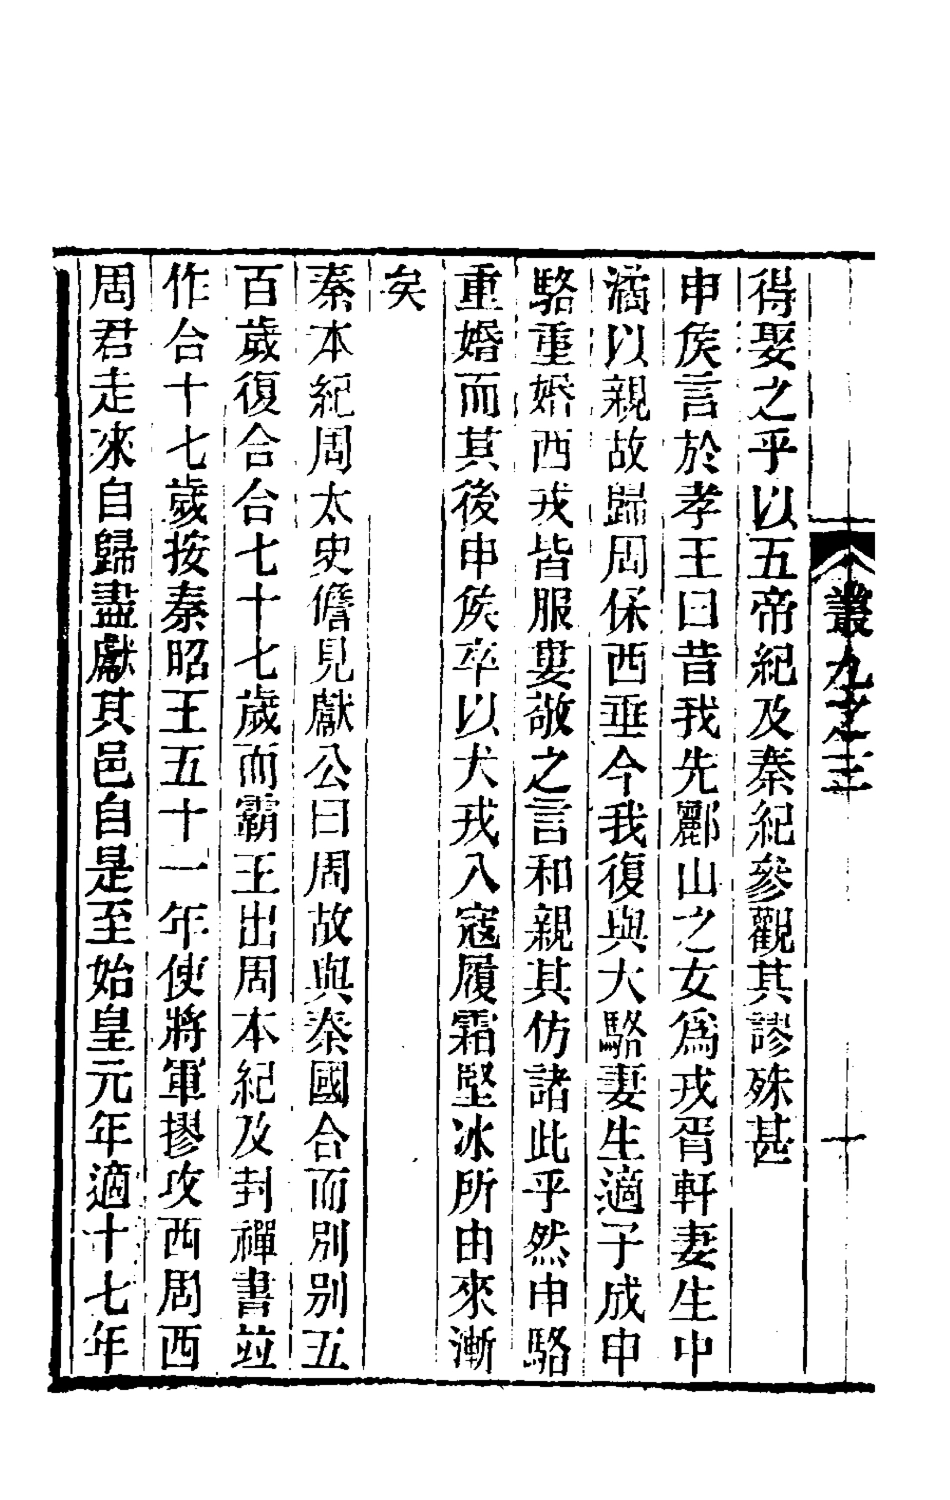 叢九之三
十
得娶之乎以五帝紀及秦紀參觀其謬殊甚
申侯言於孝王曰昔我先酈山之女爲戎胥軒妻生中
潏以親故歸周保西垂今我復與大駱妻生適子成申
駱重婚西戎皆服婁敬之言和親其仿諸此乎然申駱
重婚而其後申侯卒以犬戎入寇履霜堅冰所由來漸
矣
秦本紀周太史儋見獻公曰周故與秦國合而別別五
百歲復合合七十七歲而霸王出周本紀及封禪書竝
作合十七歲按秦昭王五十一年使將軍摎攻西周西
周君走來自歸盡獻其邑自是至始皇元年適十七年